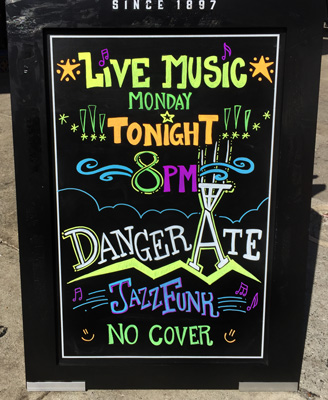 SINCE 1897
LIVE MUSIC
MONDAY
!!! TONIGHT !!!
8PM
DANGERATE
JAZZFUNK
NO COVER